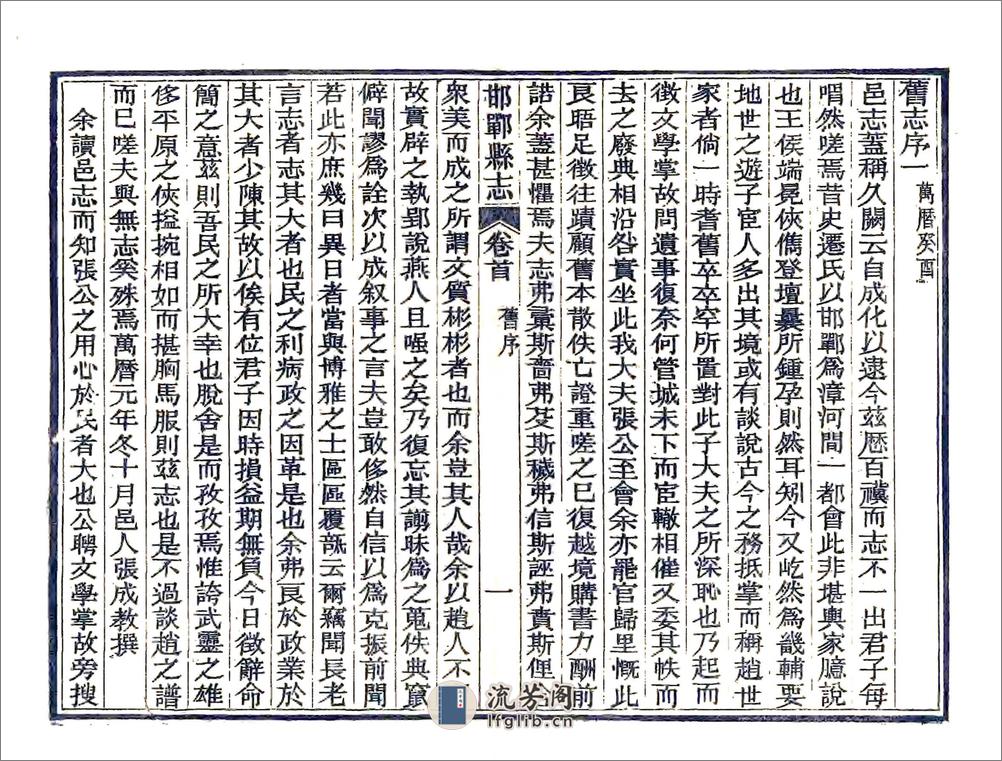 舊志序一 萬曆癸酉
邑志蓋稱久闕云自成化以逮今茲歷百禩而志不一出君子每
喟然嗟焉昔史遷氏以邯鄲為漳河間一都會此非堪輿家臆說
也王侯端冕俠儁登壇曩所鍾孕則然耳矧今又屹然為畿輔要
地世之遊子宦人多出其境或有談說古今之務抵掌而稱趙世
家者倘一時耆舊卒卒罕所置對此子大夫之所深恥也乃起而
徵文學掌故問遺事復奈何管城未下而宦轍相催又委其帙而
去之廢典相沿咎實坐此我大夫張公至會余亦罷官歸里慨此
艮晤足徵往蹟顧舊本散佚亡證重嗟之已復越境購書力酬前
誥余蓋甚懼焉夫志弗彚斯嗇弗芟斯穢弗信斯誣弗賁斯俚
邯鄲縣志 卷首 舊序 一
衆美而成之所謂文質彬彬者也而余豈其人哉余以趙人不
故實辟之執郢說燕人且嗤之矣乃復忘其謭昧為之蒐佚典竄
僻聞謬為詮次以成叙事之言夫豈敢侈然自信以為克振前聞
若此亦庶幾曰異日者當與博雅之士區區覆瓿云爾竊聞長老
言志者志其大者也民之利病政之因革是也余弗艮於政業於
其大者少陳其故以俟有位君子因時損益期無負今日徵辭命
簡之意茲則吾民之所大幸也脫舍是而孜孜焉惟誇武靈之雄
侈平原之俠搤捥相如而揕胸馬服則茲志也是不過談趙之譜
而已嗟夫與無志奚殊焉萬曆元年冬十月邑人張成教撰
余讀邑志而知張公之用心於民者大也公聘文學掌故旁搜
流芳阁
lfglib.cn